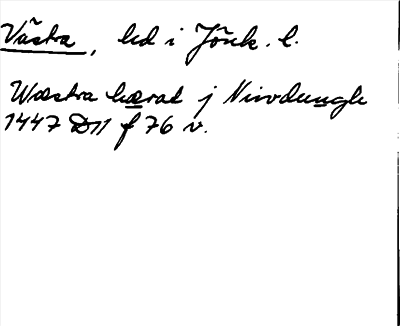 Västra, hd i Jönk. l.
Wæstra hærat j Niwdungh
1447 D11 f 76 v.